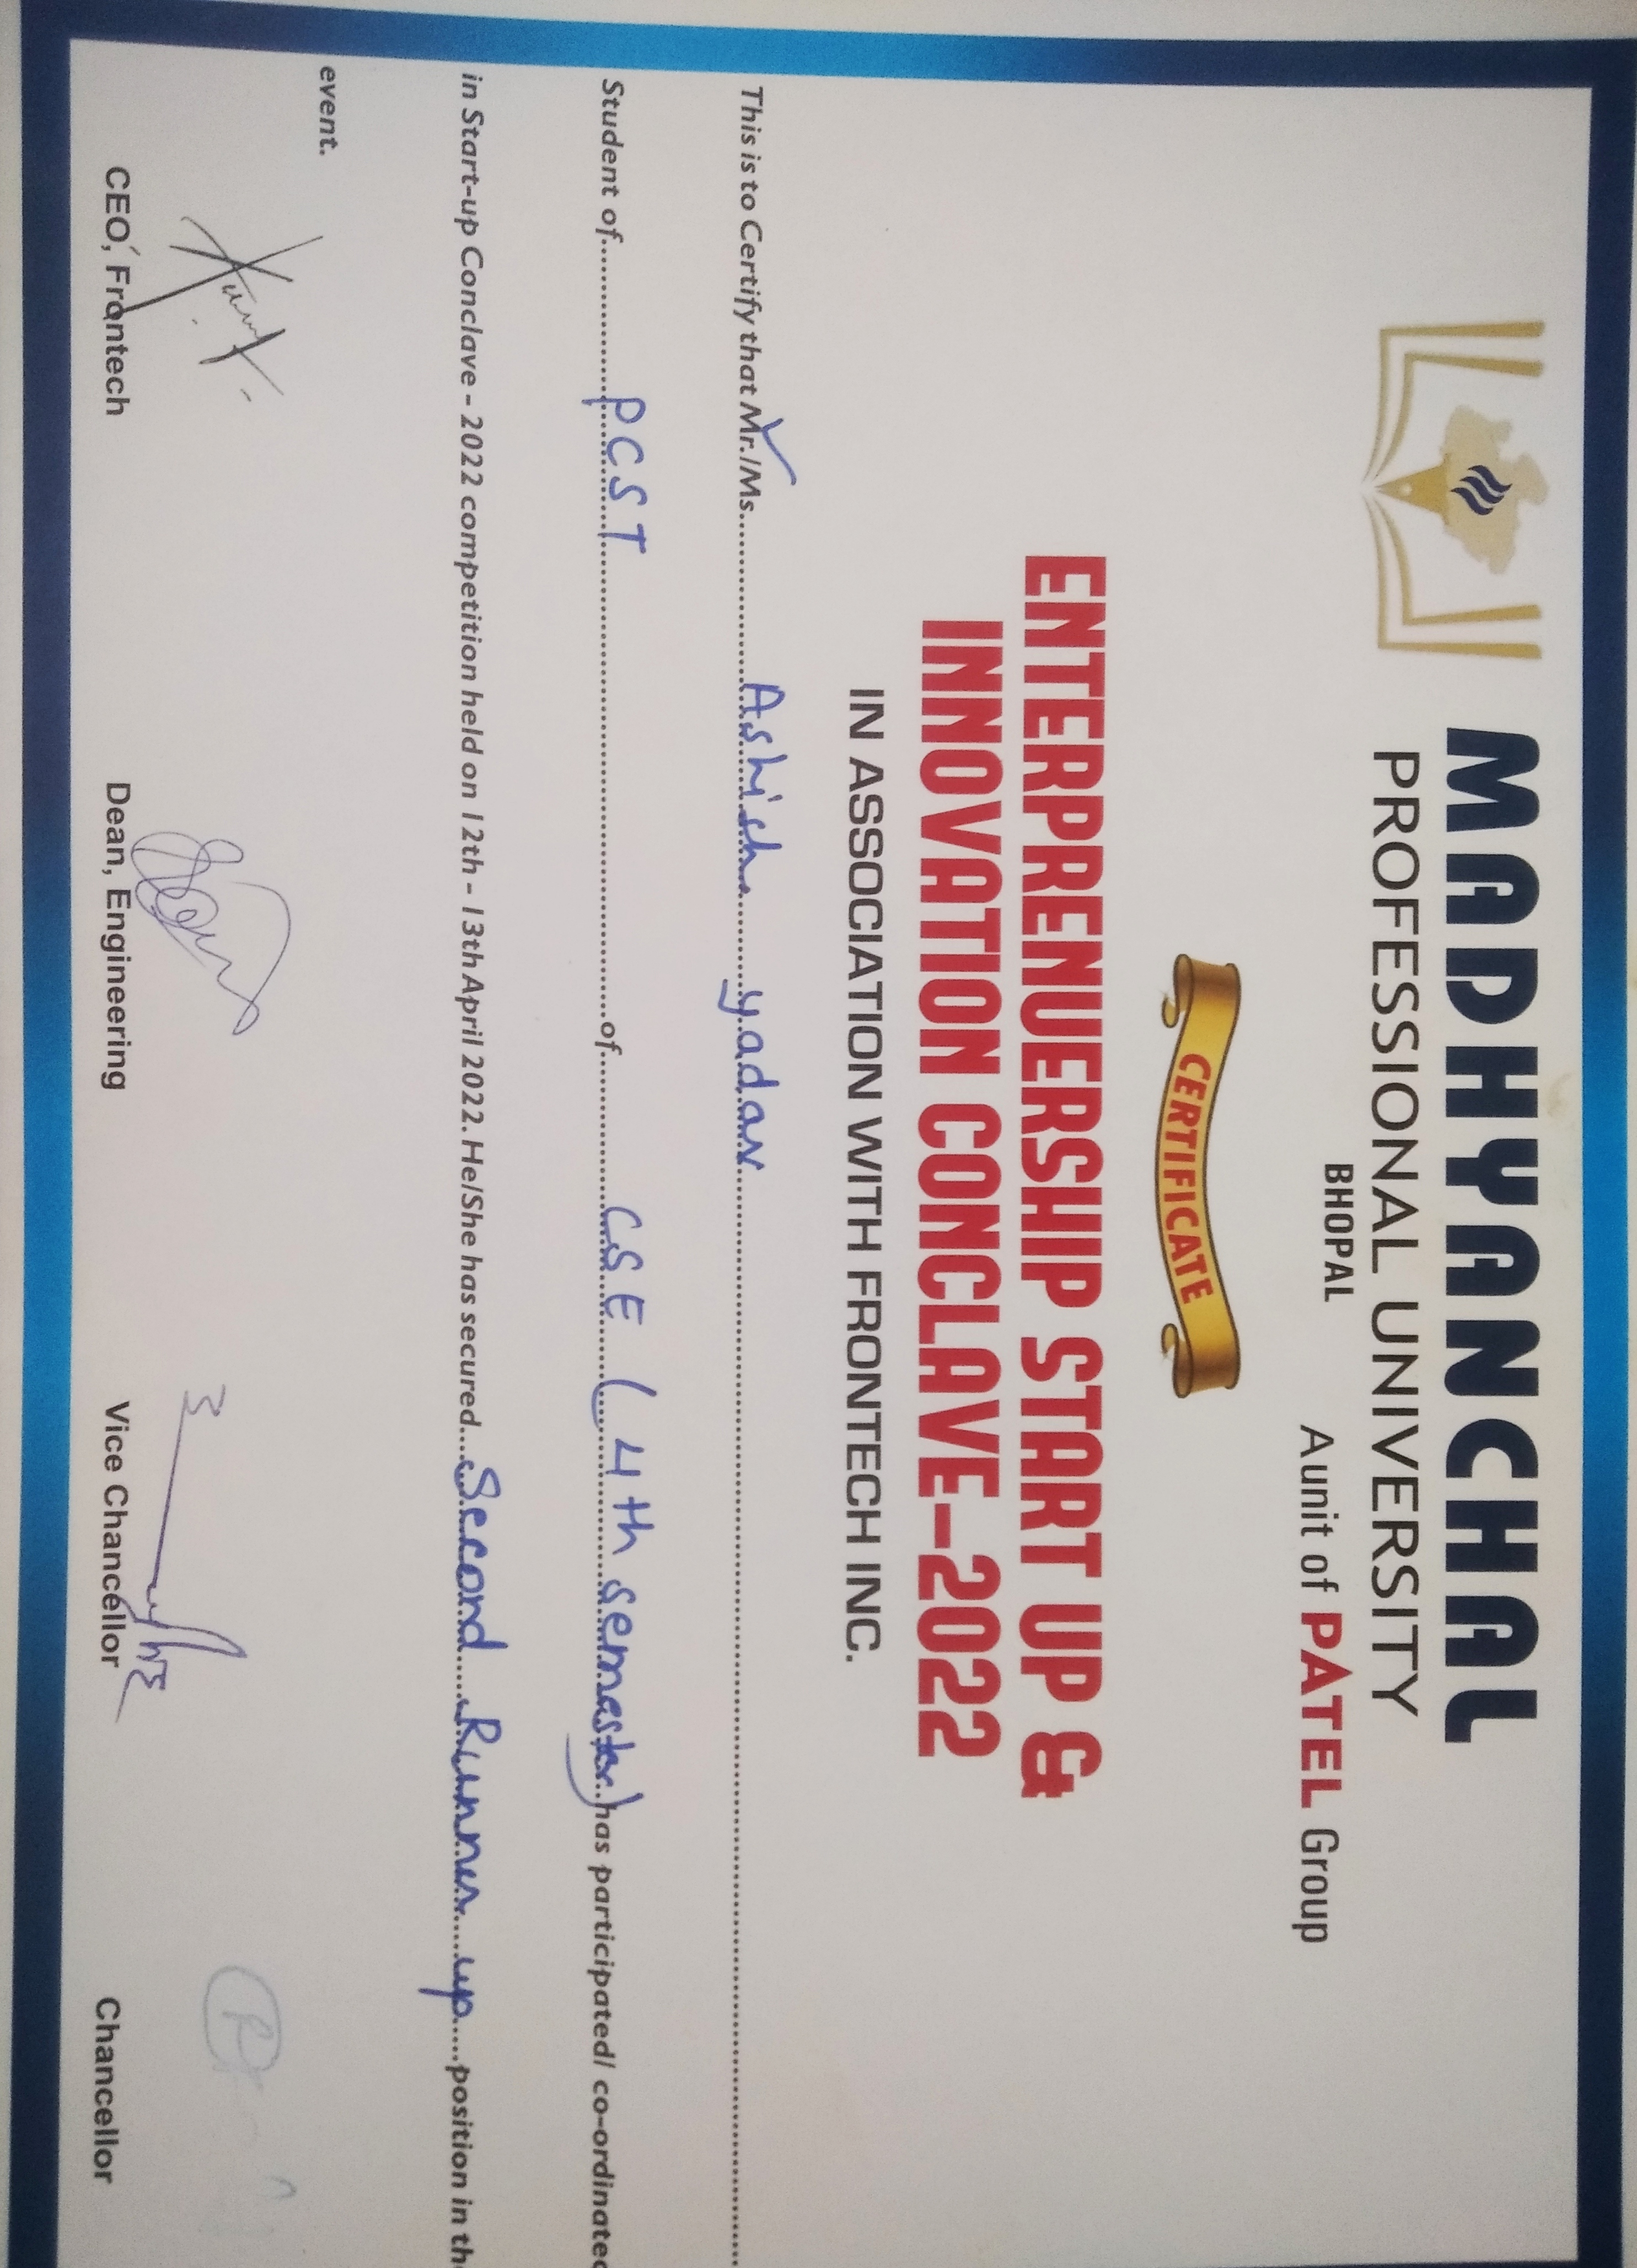 MADHYANCHAL
PROFESSIONAL UNIVERSITY
BHOPAL
A unit of PATEL Group
CERTIFICATE
ENTERPRENUERSHIP START UP &
INNOVATION CONCLAVE-2022
IN ASSOCIATION WITH FRONTECH INC.
This is to Certify that Mr./Ms. Ashish yadav
Student of PCST of CSE (4th semester) has participated/ co-ordinated
in Start-up Conclave - 2022 competition held on 12th - 13th April 2022. He/She has secured Second Runner up position in the
event.
CEO, Frontech Dean, Engineering Vice Chancellor Chancellor